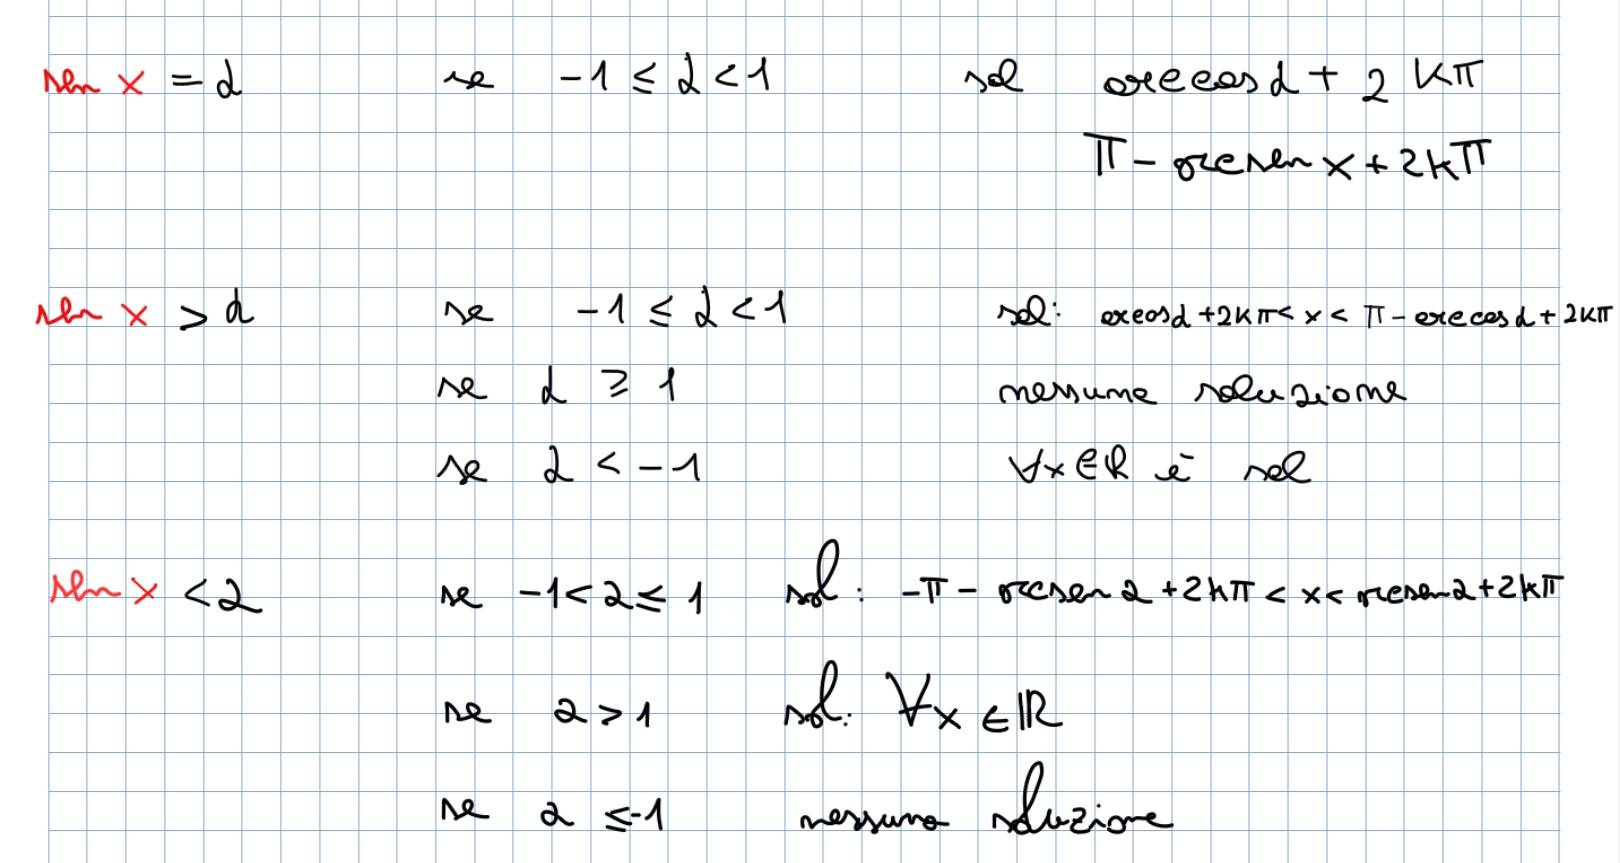 sen x = α se -1 ≤ α < 1 sol arccos α + 2 kπ
π - arcsen x + 2kπ
sen x > α se -1 ≤ α < 1 sol: arcos α + 2kπ < x < π - arccos α + 2kπ
se α ≥ 1 nessuna soluzione
se α < -1 ∀x ∈ R è sol
sen x < α se -1 < α ≤ 1 sol: -π - arcsen α + 2kπ < x < arcsen α + 2kπ
se α > 1 sol: ∀x ∈ ℝ
se α ≤ -1 nessuna soluzione